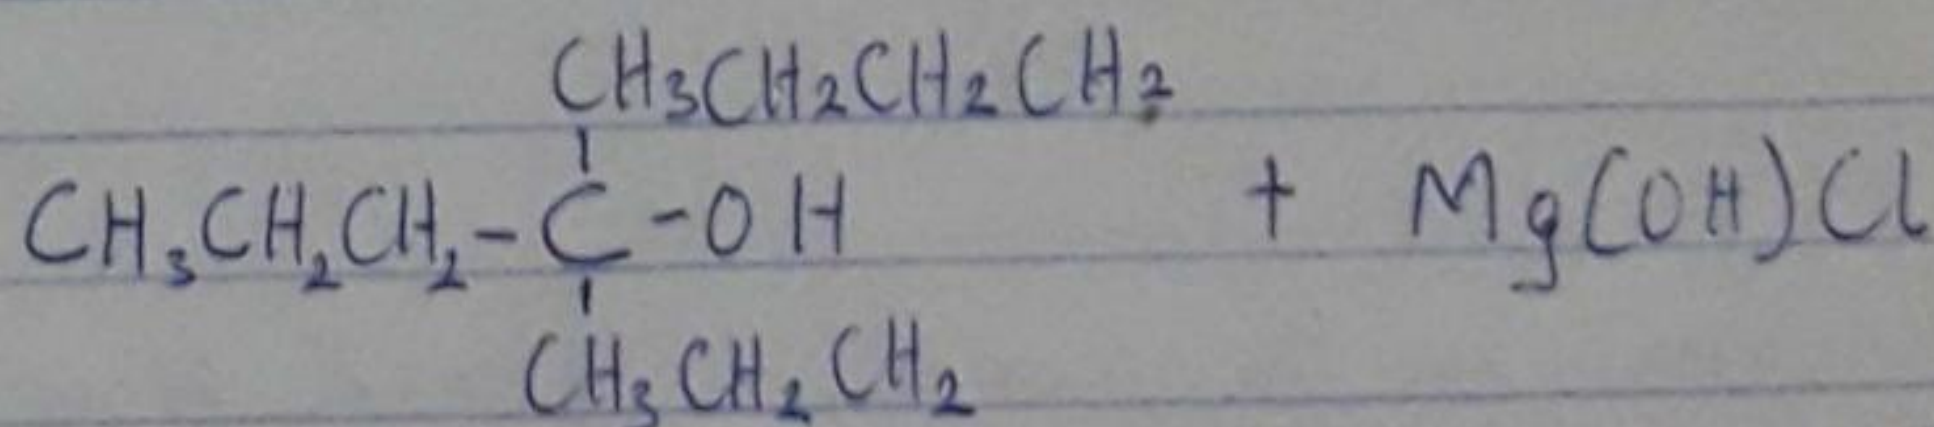 CH₃CH₂CH₂CH₂
CH₃CH₂CH₂-C-OH + Mg(OH)Cl
CH₃CH₂CH₂